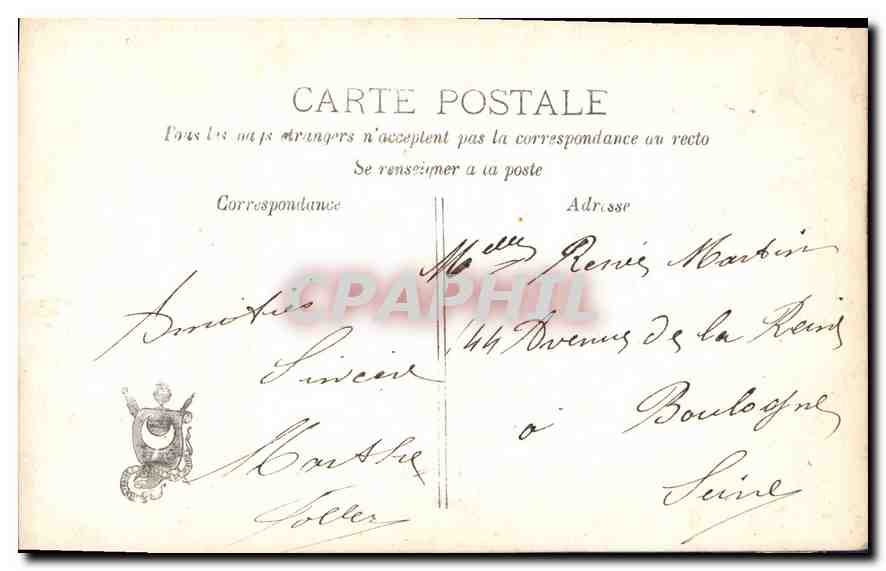 CARTE POSTALE
Tous les pays étrangers n'acceptent pas la correspondance au recto
Se renseigner a la poste
Correspondance
Adresse
Amitiés
Sincère
Marthe
Melle Renée Martin
144 Avenue de la Reine
à Boulogne
Seine
CPAPHIL